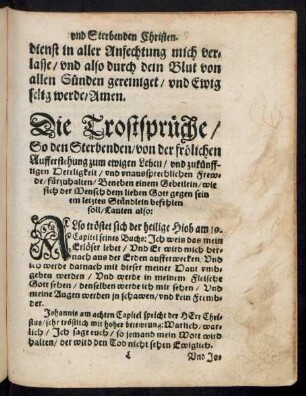 vnd Sterbenden Christen.
dienst in aller Anfechtung mich ver-
lasse/ vnd also durch dein Blut von
allen Sünden gereiniget/ vnd Ewig
selig werde/ Amen.
Die Trostsprüche/
So den Sterbenden/ von der frölichen
Aufferstehung zum ewigen Leben/ vnd zukünff-
tigen Herrligkeit/ vnd vnaussprechlichen Frew-
de/ fürzuhalten/ Beneben einem Gebetlein/ wie
sich der Mensch dem lieben Gott gegen sein
em letzten Stündlein befehlen
soll/ Lauten also:
ALso tröstet sich der heilige Hiob am 19.
Capitel seines Buchs: Ich weis das mein
Erlöser lebet/ Vnd Er wird mich her-
nach aus der Erden aufferwecken. Vnd
ich werde darnach mit dieser meiner Haut vmb-
geben werden/ Vnd werde in meinem Fleische
Gott sehen/ denselben werde ich mir sehen/ Vnd
meine Augen werden jn schawen/ vnd kein Fremb-
der.
Johannis am achten Capitel spricht der HErr Chri
stus/ sehr tröstlich mit hoher beterung: Warlich/ war-
lich/ Ich sage euch/ so jemand mein Wort wird
halten/ der wird den Tod nicht sehen Ewiglich.
Vnd Jos